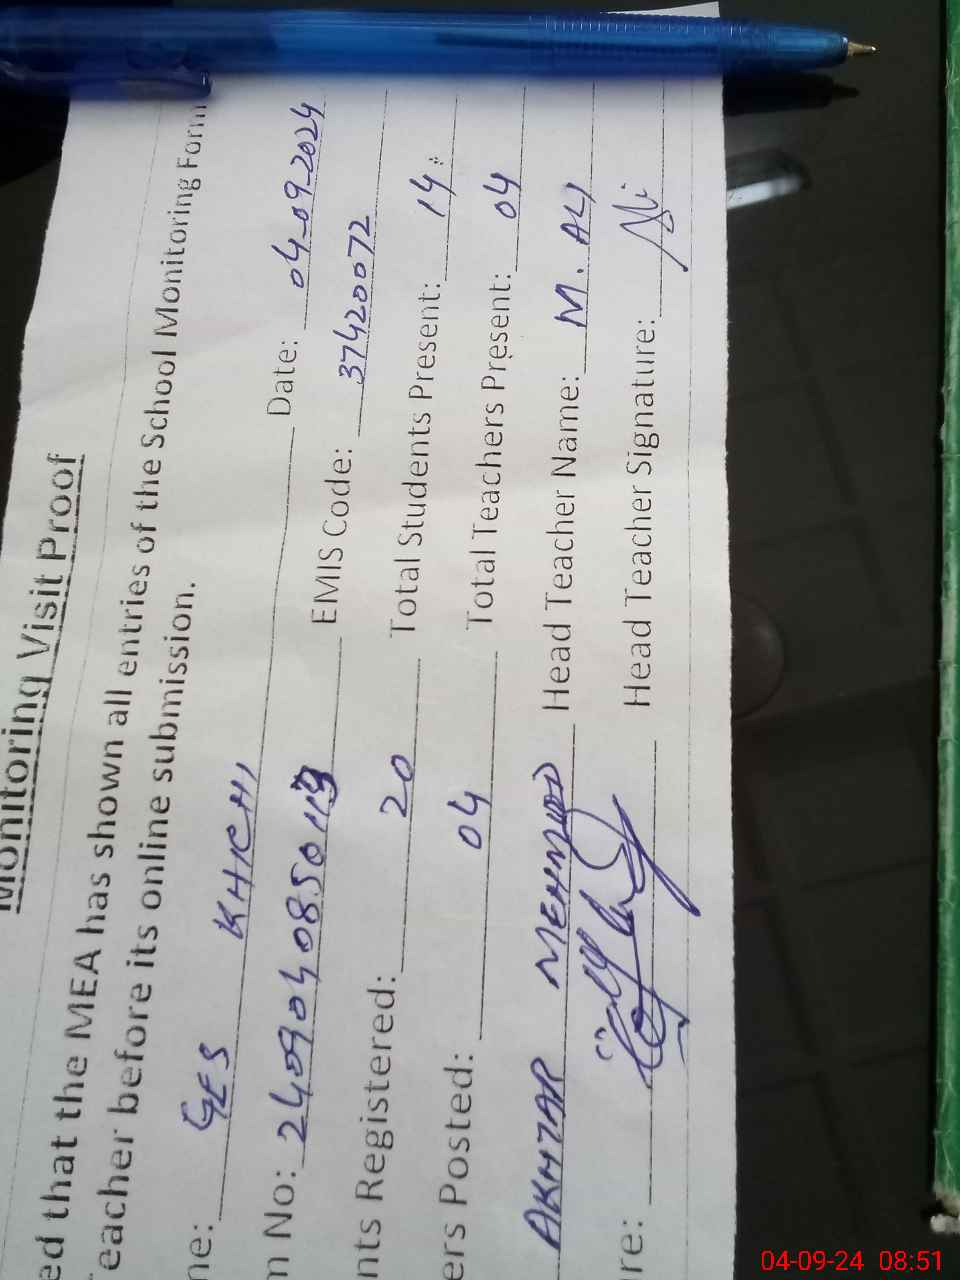 Monitoring Visit Proof
ed that the MEA has shown all entries of the School Monitoring Form
Teacher before its online submission.
ne: GES KHICHI Date: 04-09-2024
n No: 240904085019 EMIS Code: 37420072
nts Registered: 20 Total Students Present: 14
ers Posted: 04 Total Teachers Present: 04
AKHTAR MEHMOOD Head Teacher Name: M. ALI
re: Head Teacher Signature:
04-09-24 08:51